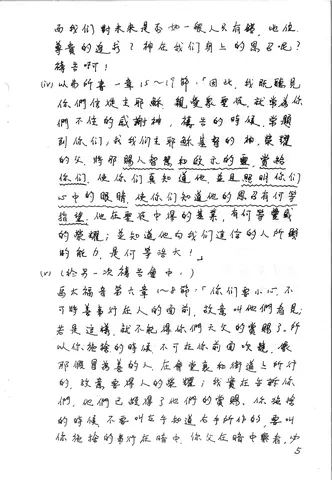 而我們對未來是否如一般人只有錢、地位、
尊貴的追求？神在我們身上的恩召呢？
禱告啊！
(iv) 以弗所書一章15～19節：「因此，我既聽見
你們信從主耶穌，親愛眾聖徒，就為你
們不住的感謝神，禱告的時候，常題
到你們；求我們主耶穌基督的神，榮耀
的父，將那賜人智慧和啟示的靈，賞給
你們，使你們真知道他，並且照明你們
心中的眼睛，使你們知道他的恩召有何等
指望；他在聖徒中得的基業，有何等豐盛
的榮耀；並知道他向我們這信的人所顯
的能力，是何等浩大！」
(v) (於另一次禱告會中，)
馬太福音第六章1～8節：「你們要小心，不
可將善事行在人的面前，故意叫他們看見；
若是這樣，就不能得你們天父的賞賜了。所
以你施捨的時候，不可在你前面吹號，像
那假冒為善的人，在會堂裏和街道上所行
的，故意要得人的榮耀；我實在告訴你
們，他們已經得了他們的賞賜。你施捨
的時候，不要叫左手知道右手所作的；要叫
你施捨的事行在暗中，你父在暗中察看，必
5